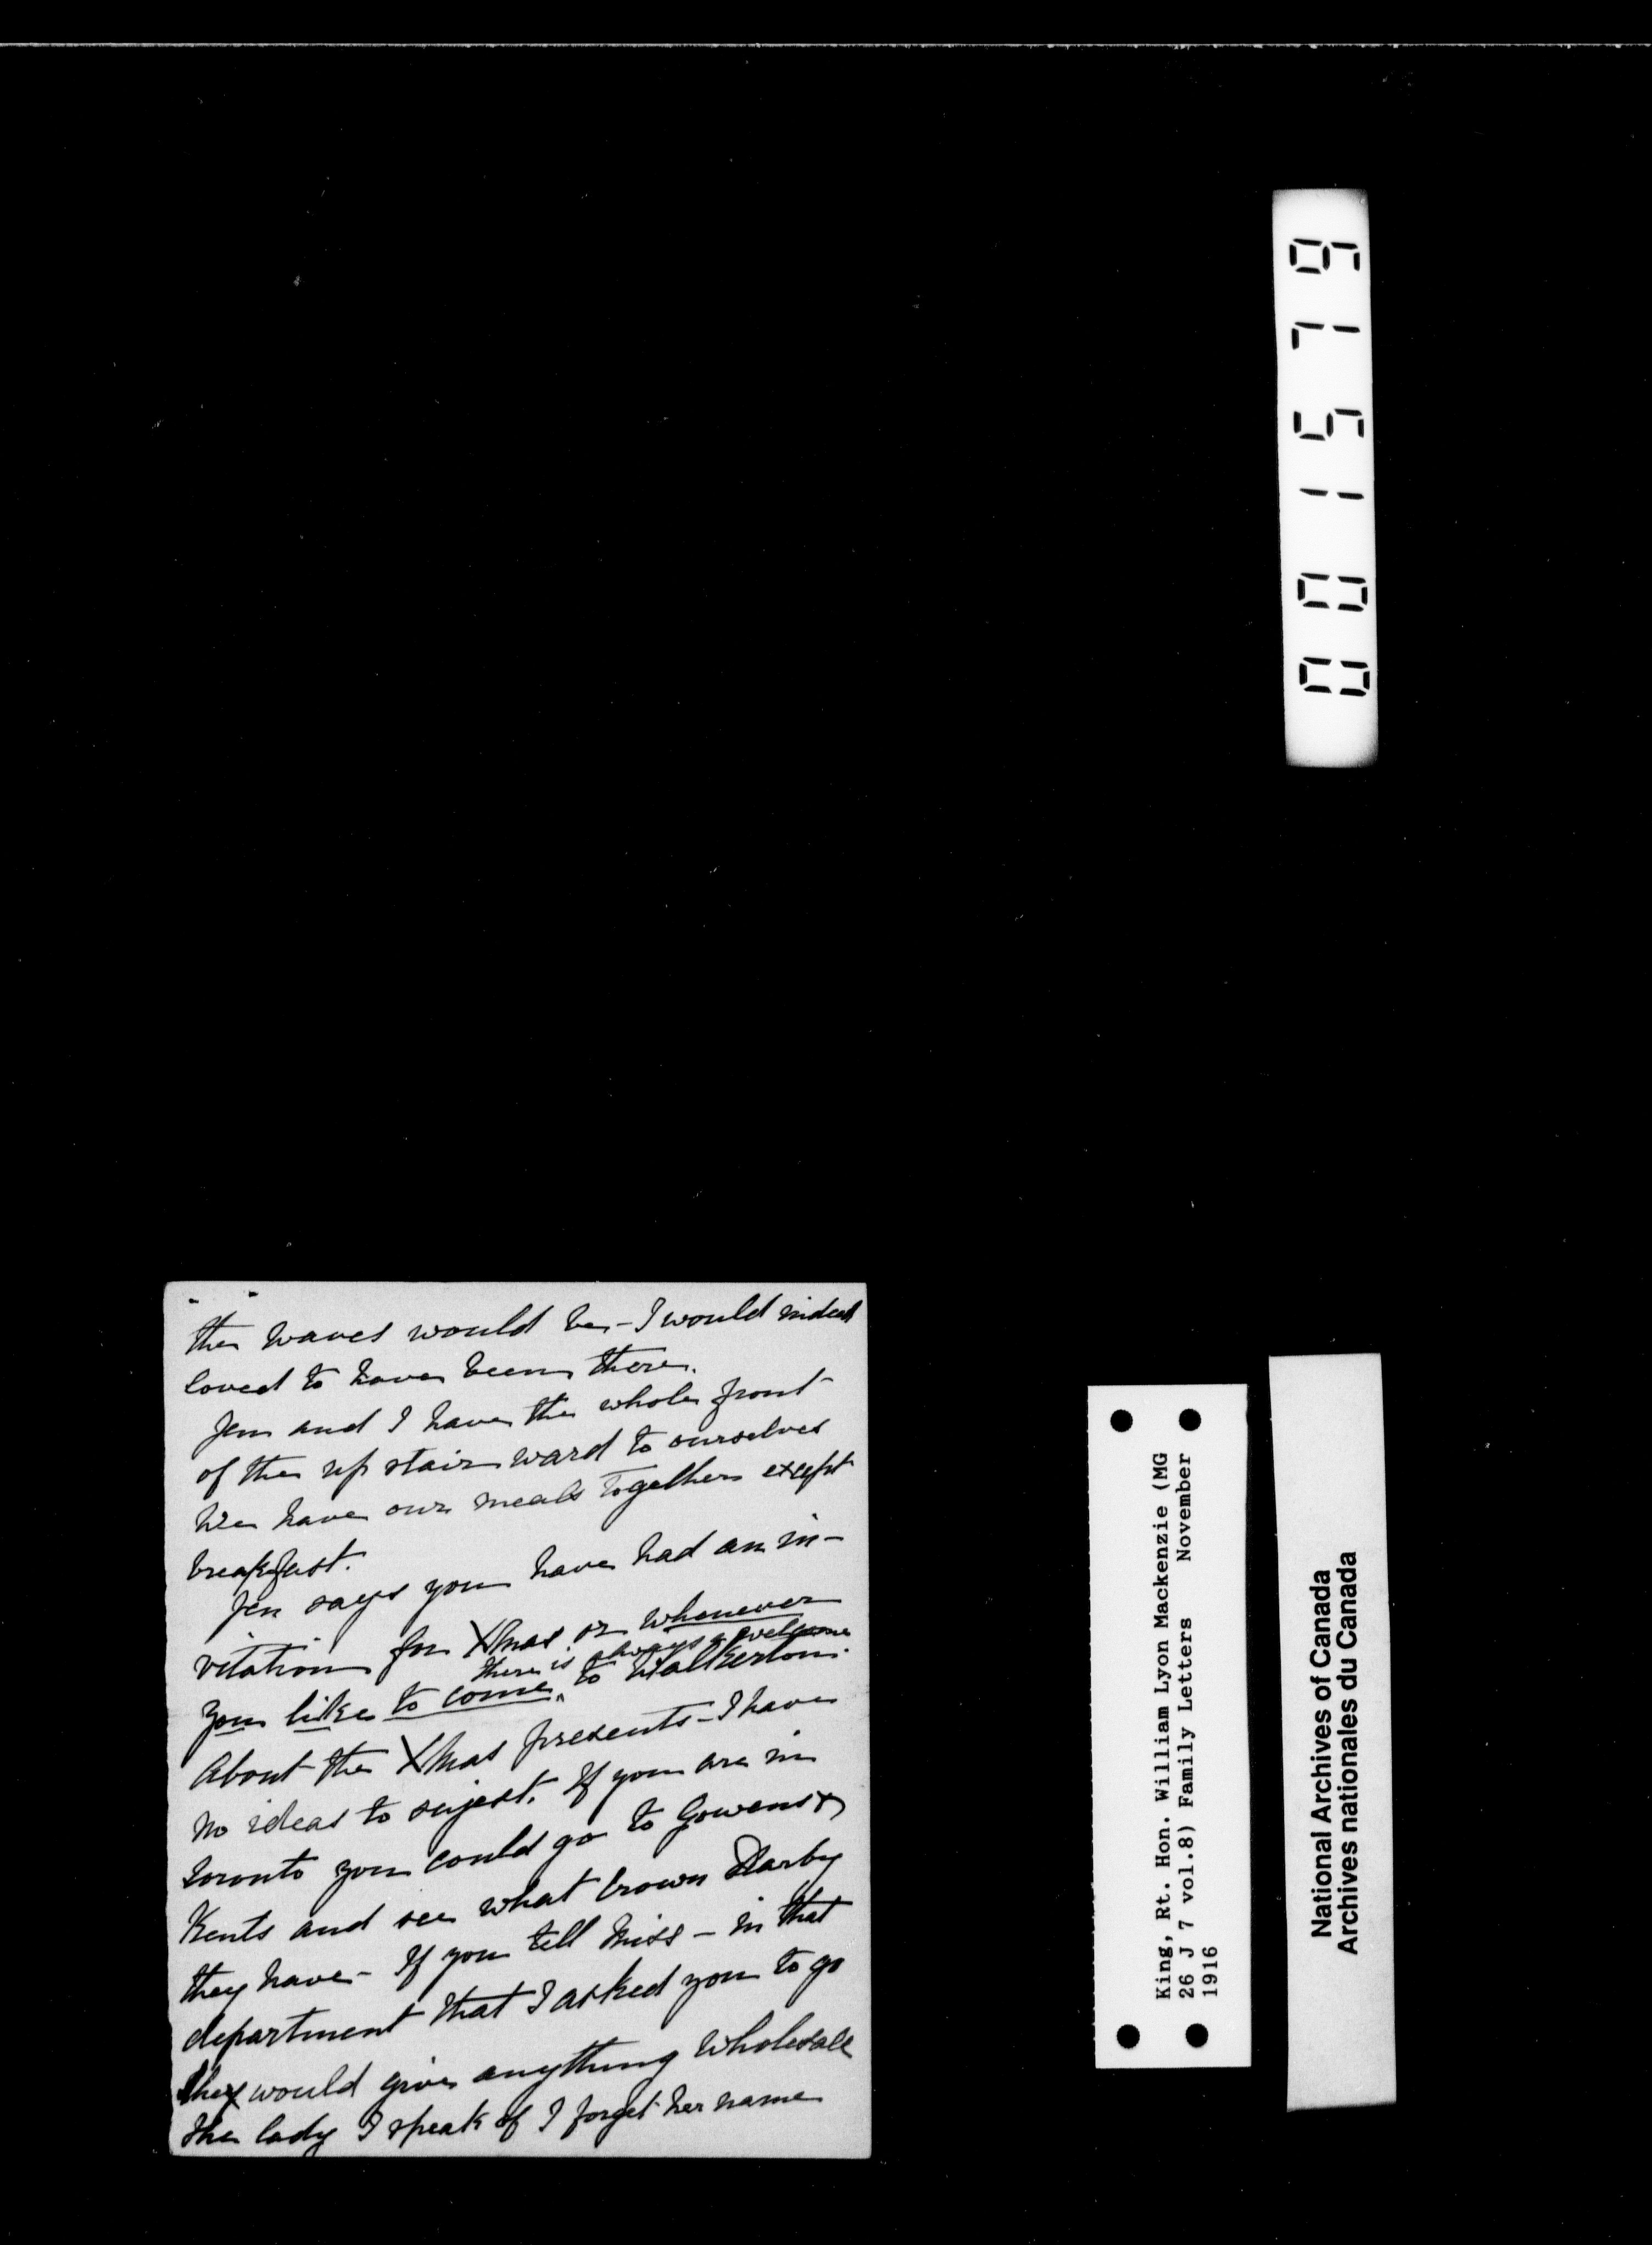 the waves would be - I would indeed
loved to have been there.
Jen and I have the whole front
of the up stair ward to ourselves
We have our meals together except
breakfast.
Jen says you have had an in-
vitation for Xmas or whenever
there is always a welcome
you like to come, to Walkerton.
About the Xmas presents - I have
no ideas to sujest. If you are in
Toronto you could go to Gowans &
Kents and see what Crown Darby
they have - If you tell Miss - in that
department that I asked you to go
they would give anything wholesale
the lady I speak of I forget her name
001579
King, Rt. Hon. William Lyon Mackenzie (MG
26 J 7 vol.8) Family Letters November
1916
National Archives of Canada
Archives nationales du Canada